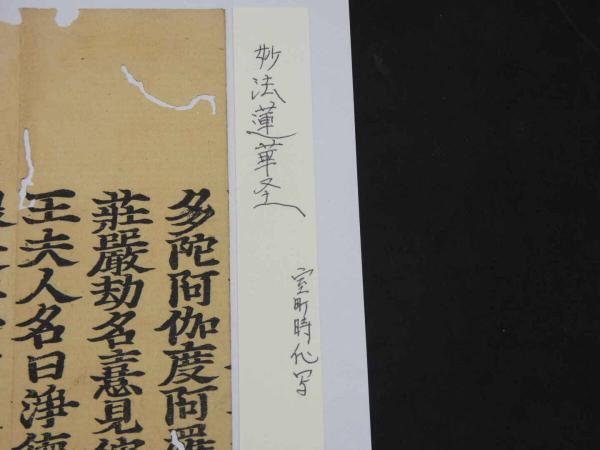 妙法蓮華圣
室町時代写
多陀阿伽度阿羅
莊嚴劫名憙見彼
王夫人名曰淨德